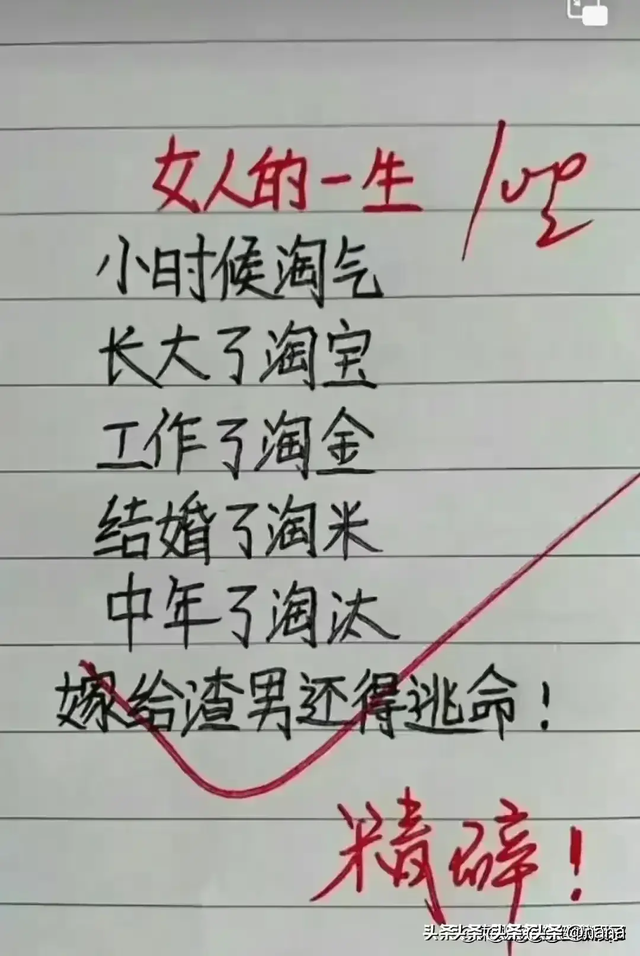 女人的一生
小时候淘气
长大了淘宝
工作了淘金
结婚了淘米
中年了淘汰
嫁给渣男还得逃命！
精辟！